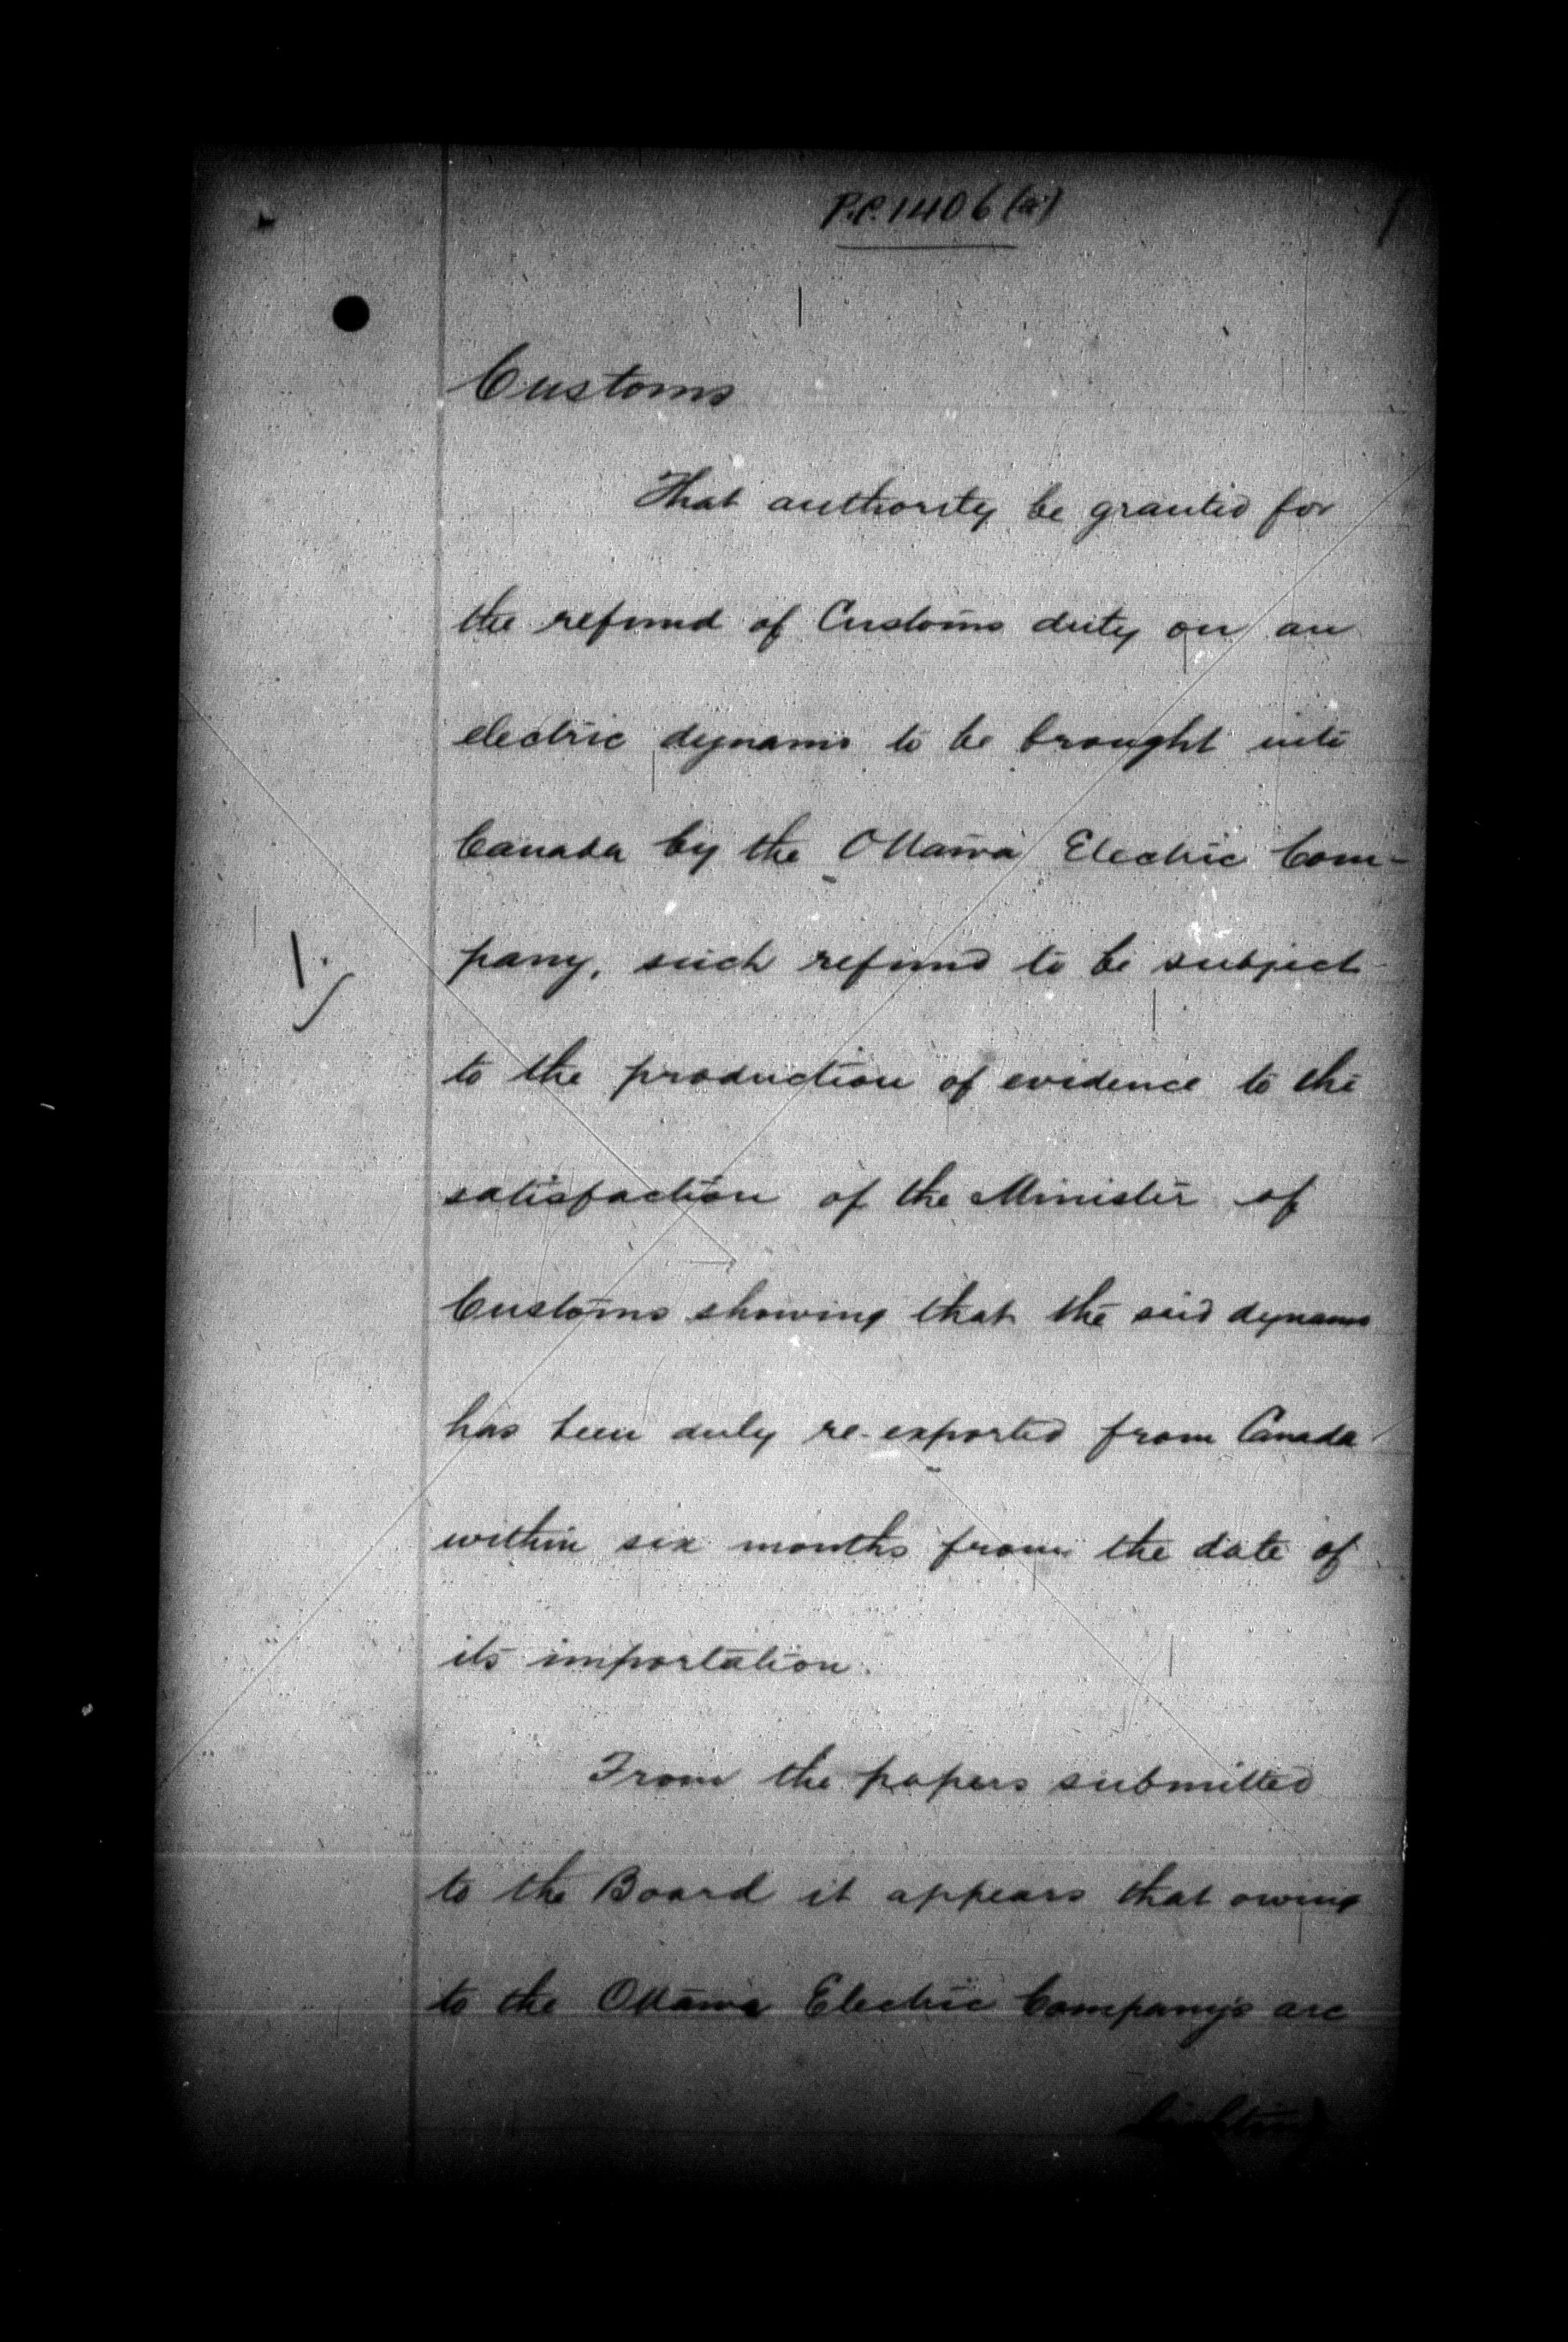 P.C. 1406 (a)
Customs
That authority be granted for
the refund of Customs duty on an
electric dynamo to be brought into
Canada by the Ottawa Electric Com-
pany, such refund to be subject
to the production of evidence to the
satisfaction of the Minister of
Customs showing that the said dynamo
has been duly re-exported from Canada
within six months from the date of
its importation.
From the papers submitted
to the Board it appears that owing
to the Ottawa Electric Company's arc
lighting